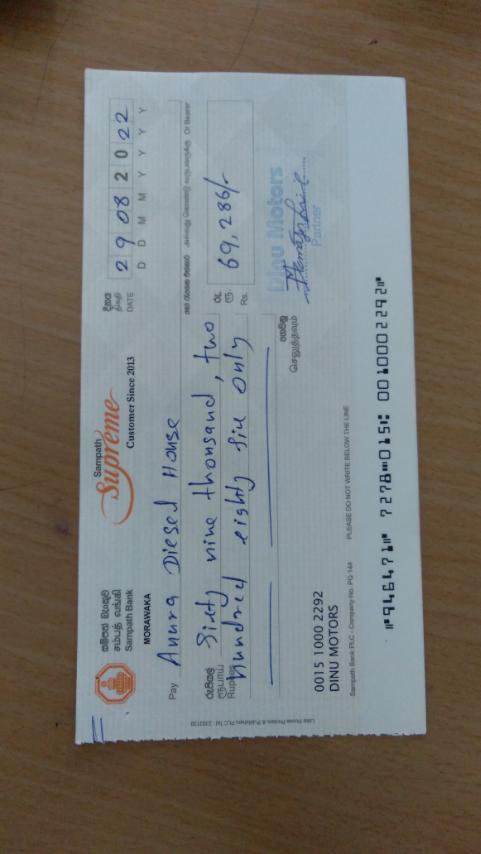 සම්පත් බැංකුව
சம்பத் வங்கி
Sampath Bank
MORAWAKA
Sampath
Supreme
Customer Since 2013
දිනය
திகதி
DATE
29082022
D D M M Y Y Y Y
Pay Anura Diesel House
Or Bearer
රුපියල්
ரூபாய்
Rupees
Sixty nine thousand, two
hundred eighty six only
රු.
ரூ.
Rs.
69,286/-
Dinu Motors
Partner
ගෙවනු
செலுத்தவும்
0015 1000 2292
DINU MOTORS
Sampath Bank PLC - Company No. PQ 144
PLEASE DO NOT WRITE BELOW THE LINE
946471 7278 015 0010002292